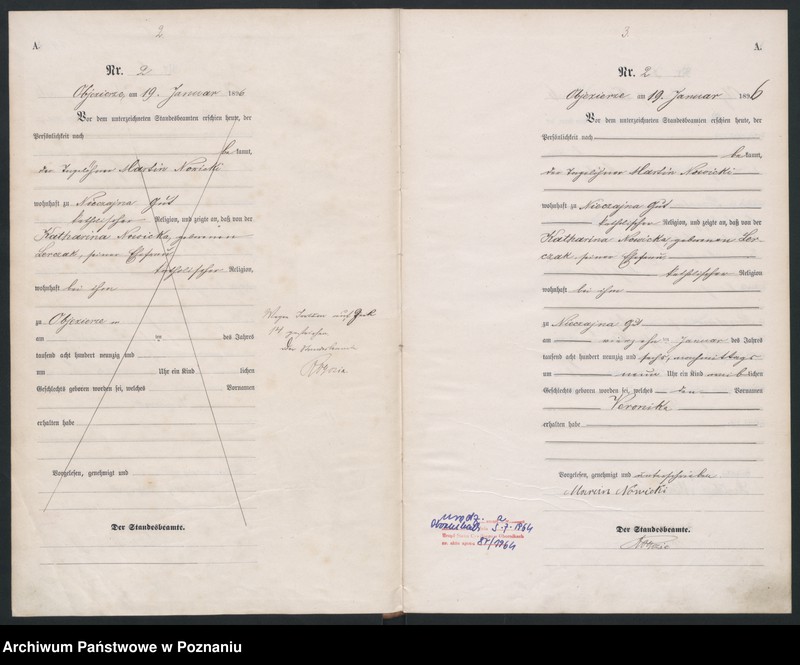 2
A.
Nr. 2
Objezierze, am 19. Januar 1896
Vor dem unterzeichneten Standesbeamten erschien heute, der
Persönlichkeit nach
be kannt,
der Tagelöhner Martin Nowicki
wohnhaft zu Nieczajna Gut
katholischer Religion, und zeigte an, daß von der
Katharina Nowicka, geborenen
Lorczak, seiner Ehefrau
katholischer Religion,
wohnhaft bei ihm
zu Objezierze
am des Jahres
tausend acht hundert neunzig und
um Uhr ein Kind lichen
Geschlechts geboren worden sei, welches Vornamen
erhalten habe
Vorgelesen, genehmigt und
Der Standesbeamte.
Der Standesbeamte
3
A.
Nr. 2
Objezierze am 19. Januar 1896
Vor dem unterzeichneten Standesbeamten erschien heute, der
Persönlichkeit nach
be kannt,
der Tagelöhner Martin Nowicki
wohnhaft zu Nieczajna Gut
katholischer Religion, und zeigte an, daß von der
Katharina Nowicka geborenen Lor-
czak, seiner Ehefrau
katholischer Religion
wohnhaft bei ihm
zu Nieczajna Gut
am vierzehn Januar des Jahres
tausend acht hundert neunzig und sechs, nachmittags
um neun Uhr ein Kind weib lichen
Geschlechts geboren worden sei, welches den Vornamen
Veronika
erhalten habe
Vorgelesen, genehmigt und unterschrieben
Marcin Nowicki
Der Standesbeamte.
5.7.1964
81/1964
Archiwum Państwowe w Poznaniu